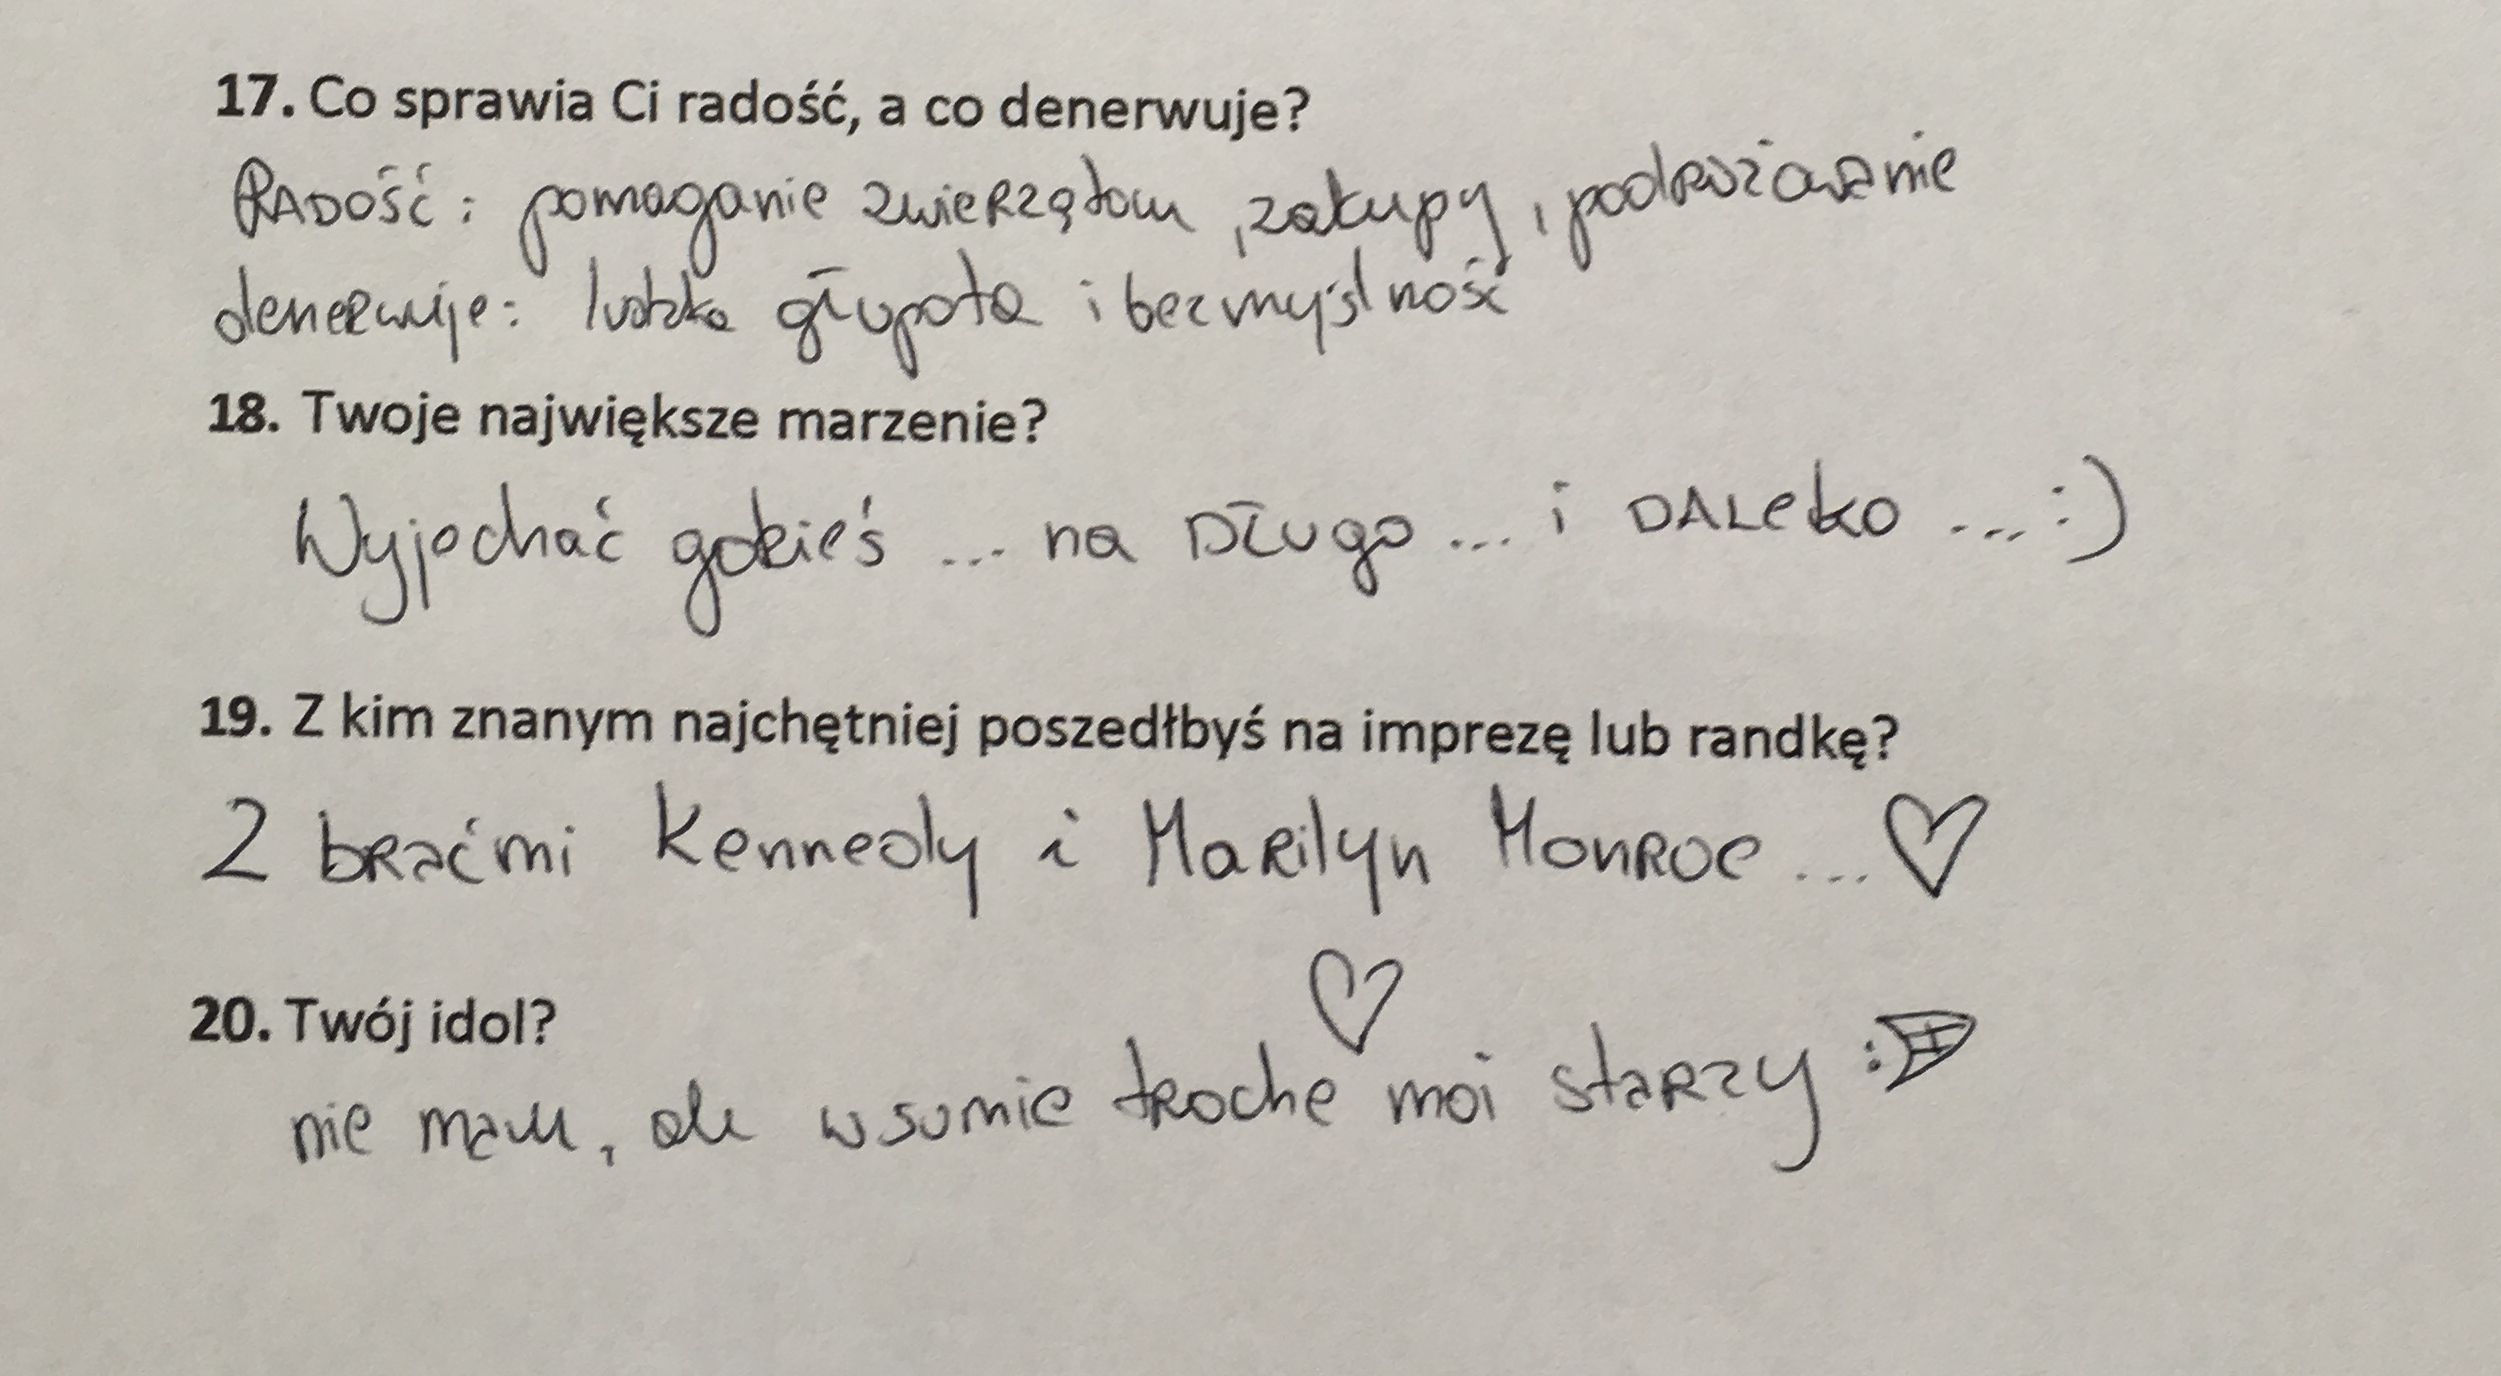 17. Co sprawia Ci radość, a co denerwuje?
RADOŚĆ: pomaganie zwierzętom, zakupy, podróżowanie
denerwuje: ludzka głupota i bezmyślność
18. Twoje największe marzenie?
Wyjechać gdzieś ... na Długo ... i DALeko ... :)
19. Z kim znanym najchętniej poszedłbyś na imprezę lub randkę?
Z braćmi Kennedy i Marilyn Monroe ... ♡
20. Twój idol?
nie mam, ale w sumie trochę moi starzy :D